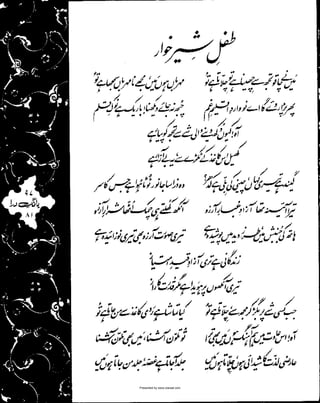 طفلِ شیر خوار
میں نے چاقو تجھ سے چھینا ہے تو چلاتا ہے تو مہرباں ہوں میں مجھے نامہرباں سمجھا ہے تو
پھر پڑا روئے گا اے نوواردِ اقلیمِ غم چبھ نہ جائے دیکھنا باریک ہے نوکِ قلم
آہ! کیوں دکھ دینے والی شے سے تجھ کو پیار ہے
کھیل اس کاغذ کے ٹکڑے سے یہ بے آزار ہے
گیند ہے تیری کہاں چینی کی بلی ہے کدھر وہ ذرا سا جانور ٹوٹا ہوا ہے جس کا سر
تیرا آئینہ تھا آزادِ غبارِ آرزو آنکھ کھلتے ہی چمک اٹھا شرارِ آرزو
ہاتھ کی جنبش میں طرزِ دید میں پوشیدہ ہے تیری صورت آرزو بھی تیری نوزائیدہ ہے
زندگانی ہے تری آزادِ قیدِ امتیاز
تیری آنکھوں پر ہویدا ہے مگر قدرت کا راز
جب کسی شے پر بگڑ کر مجھ سے چلاتا ہے تو کیا تماشا ہے ردی کاغذ سے من جاتا ہے تو
آہ! اس عادت میں ہم آہنگ ہوں میں بھی ترا تو تلون آشنا میں بھی تلون آشنا
عارضی لذت کا شیدائی ہوں چلاتا ہوں میں جلد آ جاتا ہے غصہ جلد من جاتا ہوں میں
بانگِ درا
۸۱